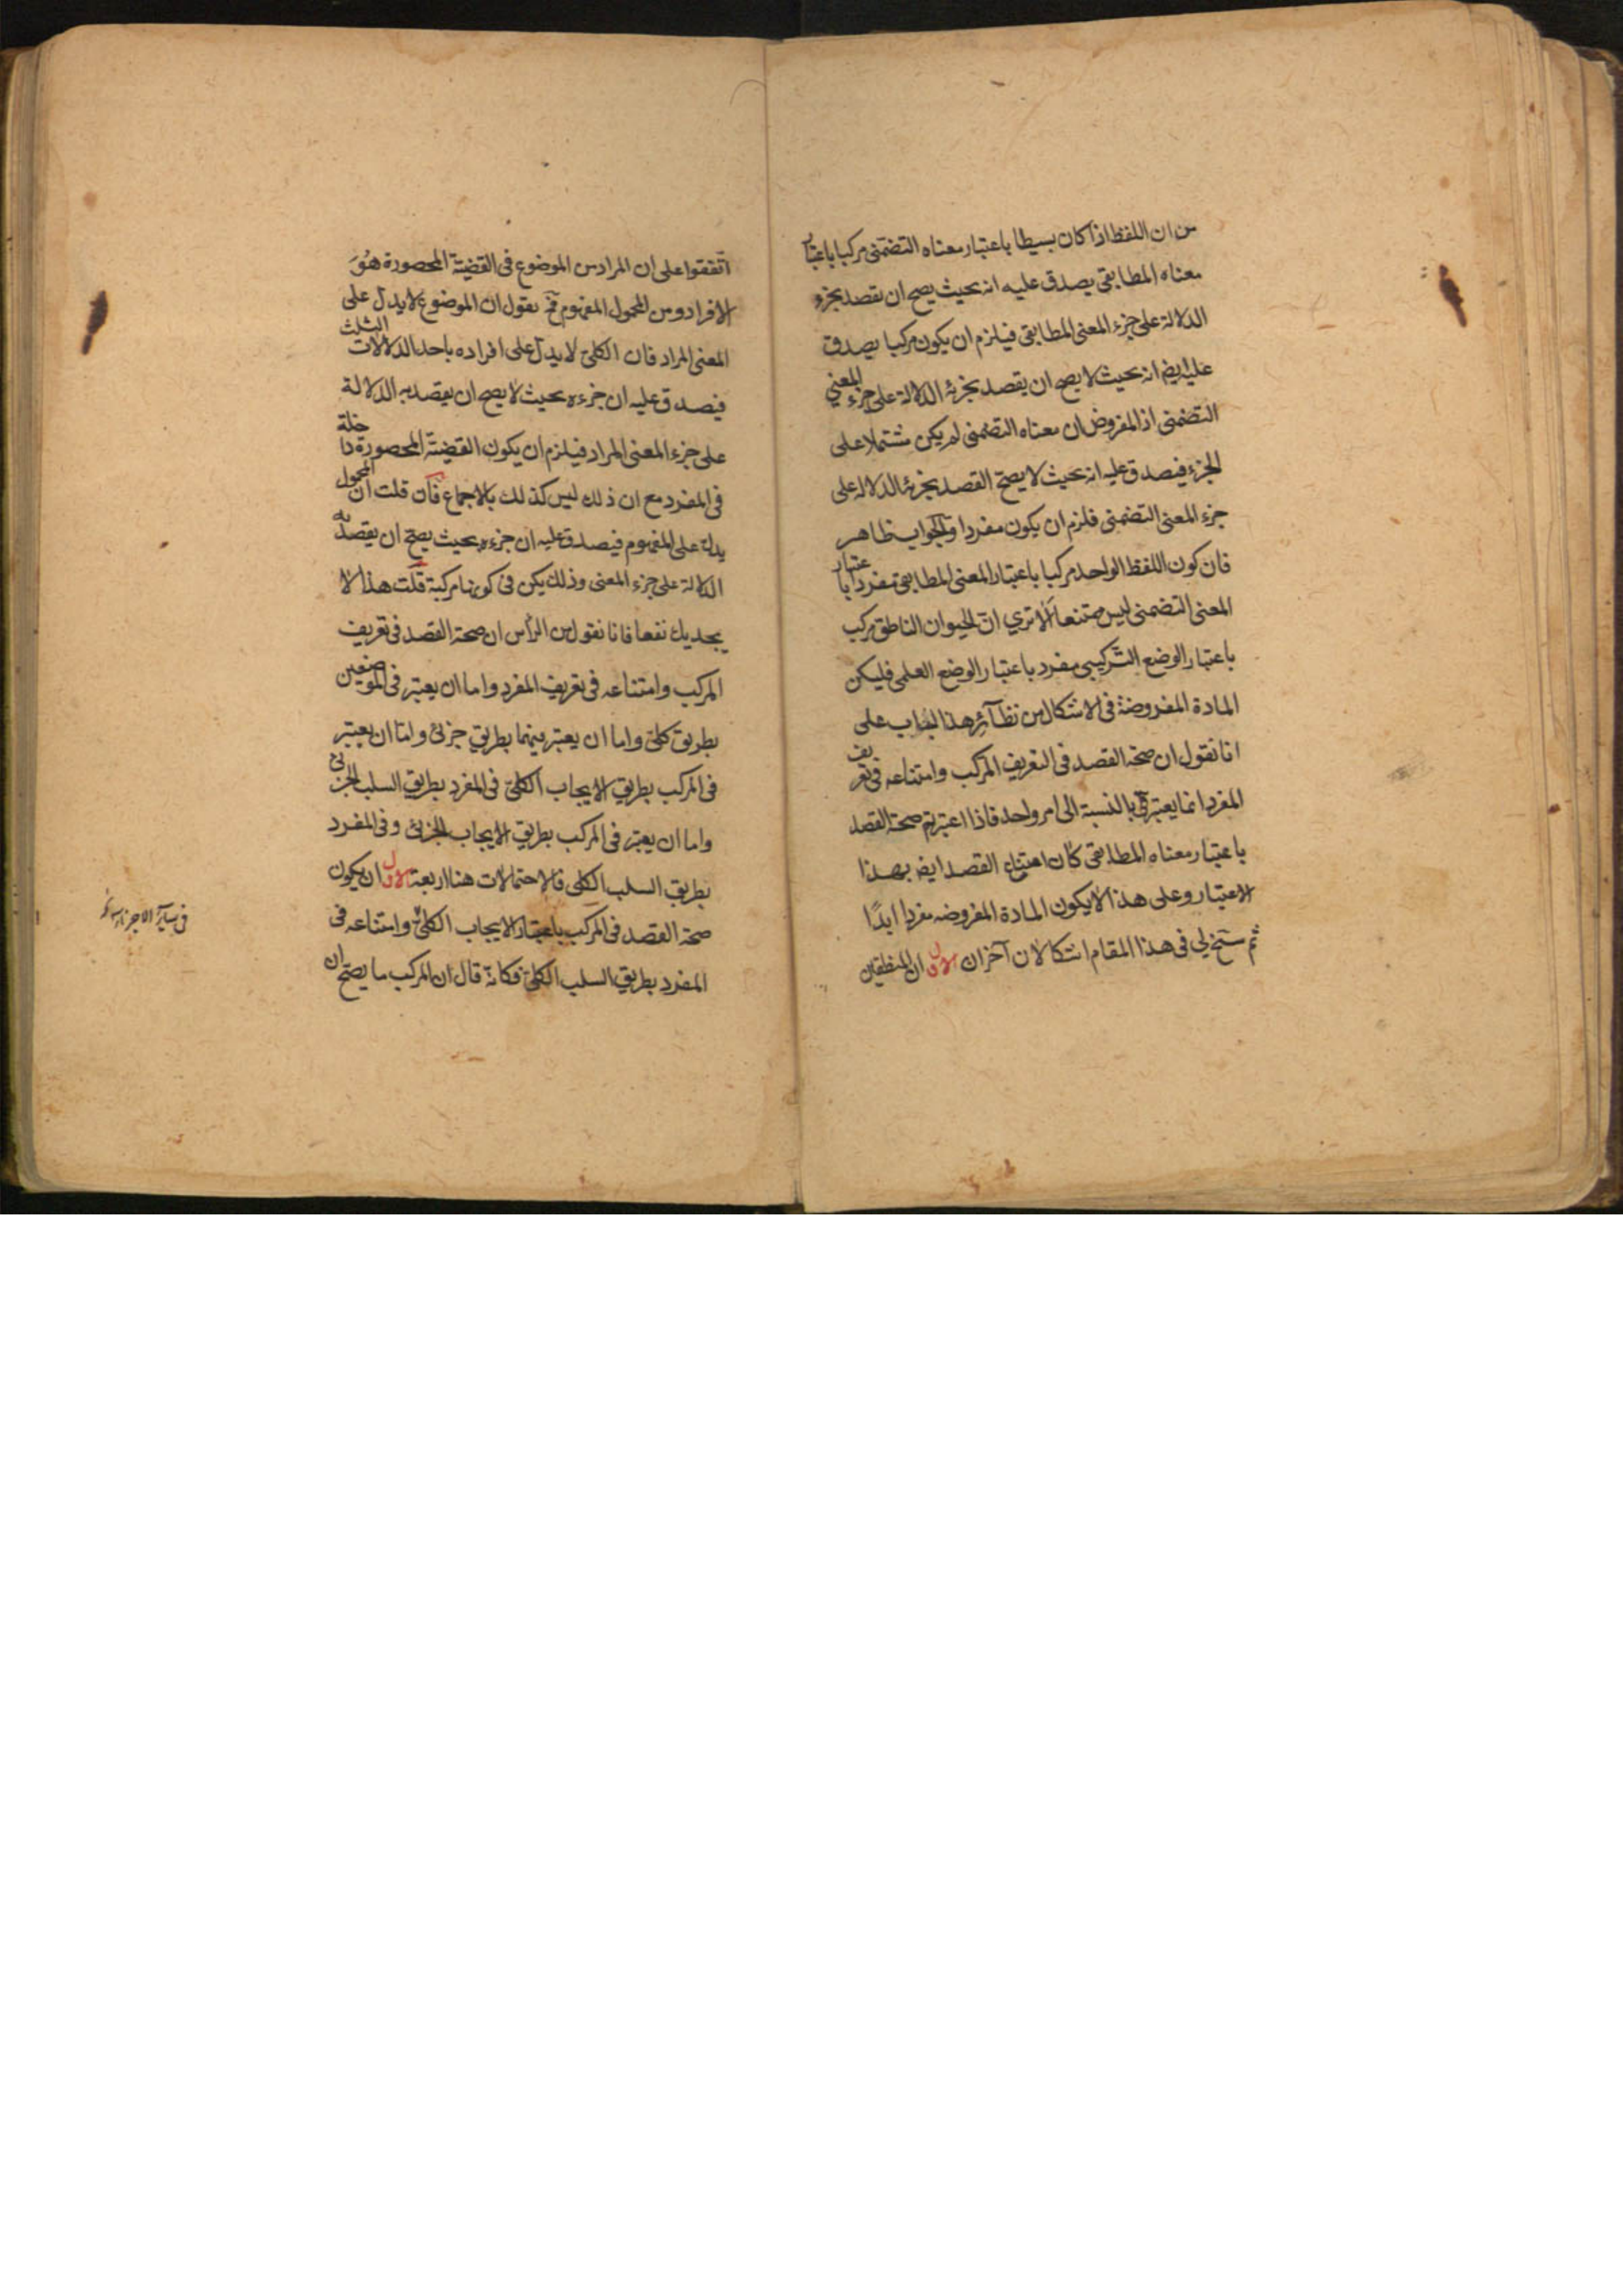 من ان اللفظ اذا كان بسيطا باعتبار معناه التضمنى مركبا باعتبار
معناه المطابقى يصدق عليه انه بحيث يصح ان يقصد بجزء
الدلالة على جزء المعنى المطابقى فيلزم ان يكون مركبا يصدق
عليه ايضا انه بحيث لا يصح ان يقصد بجزئه الدلالة على جزء المعنى
التضمنى اذ المفروض ان معناه التضمنى لم يكن مشتملا على
الجزء فيصدق عليه انه بحيث لا يصح القصد بجزئه الدلالة على
جزء المعنى التضمنى فلزم ان يكون مفردا والجواب ظاهر
فان كون اللفظ الواحد مركبا باعتبار المعنى المطابقى مفردا باعتبار
المعنى التضمنى ليس ممتنعا الا تري ان الحيوان الناطق مركب
باعتبار الوضع التركيبى مفرد باعتبار الوضع العلمى فليكن
المادة المفروضة فى الاشكال من نظآئر هذا الباب على
انا نقول ان صحة القصد فى التعريف المركب وامتناعه فى تعريف
المفرد انما يعتبر بالنسبة الى امر واحد فاذا اعتبرتم صحة القصد
باعتبار معناه المطابقى كان امتناع القصد ايضا بهذا
الاعتبار وعلى هذا لا يكون المادة المفروضه مفردا ابدًا
ثم سنح لي فى هذا المقام اشكالان آخران الاول ان المنطقيين
اتفقوا على ان المراد من الموضوع فى القضية المحصورة هُوَ
الافراد ومن المحمول المفهوم فح نقول ان الموضوع لا يدل على
المعنى المراد فان الكلى لا يدل على افراده باحد الدلالات الثلث
فيصدق عليه ان جزءه بحيث لا يصح ان يقصد به الدلالة
على جزء المعنى المراد فيلزم ان يكون القضية المحصورة داخلة
فى المفرد مع ان ذلك ليس كذلك بالاجماع فان قلت ان المحمول
يدل على المفهوم فيصدق عليه ان جزءه بحيث يصح ان يقصد به
الدلالة على جزء المعنى وذلك يكن فى كونها مركبة قلت هذا لا
يجديك نفعا فانا نقول من الرأس ان صحة القصد فى تعريف
المركب وامتناعه فى تعريف المفرد واما ان يعتبر فى الموضعين
بطريق كلى واما ان يعتبر بينهما بطريق جزئى واما ان يعتبر
فى المركب بطريق الايجاب الكلى فى المفرد بطريق السلب الجزئى
واما ان يعتبر فى المركب بطريق الايجاب الجزئى وفى المفرد
بطريق السلب الكلى فالاحتمالات هنا اربعة الاول ان يكون
صحة القصد فى المركب باعتبار الايجاب الكلى وامتناعه فى
المفرد بطريق السلب الكلى فكانه قال ان المركب ما يصح ان
فى سآير